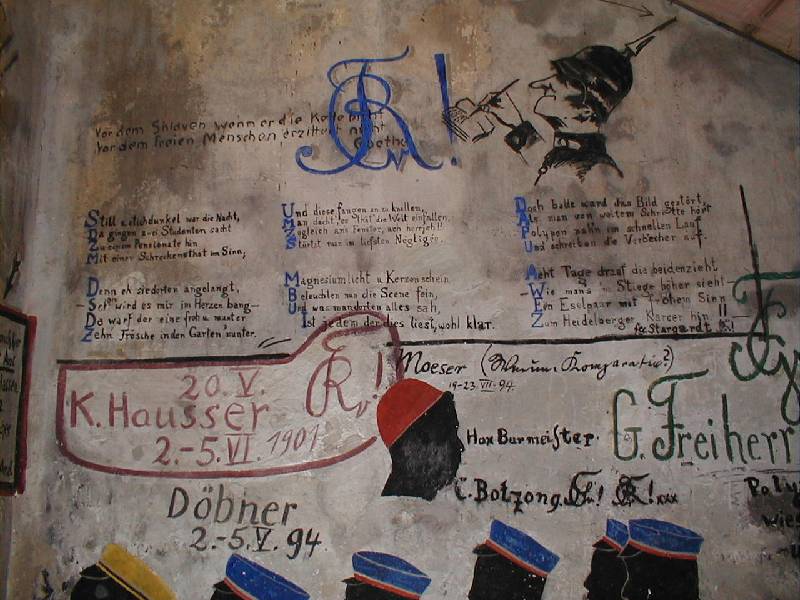 Vor dem Sklaven wenn er die Kette bricht
Vor dem freien Menschen erzittert nicht
Goethe
Still u. stichdunkel war die Nacht,
Da gingen zwei Studenten sacht
Zu einem Pensionate hin
Mit einer Schreckensthat im Sinn;
Denn eh sie dorten angelangt,
Schon wird es mir im Herzen bang
Da warf der eine froh u. munter
Zehn Frösche in den Garten runter.
Und diese fangen an zu knallen,
Man dacht, er that die Welt einfallen.
Zugleich ans Fenster, ach herrjeh!!
Stürtzt man im tiefsten Negligée.
Magnesiumlicht u. Kerzenschein
Beleuchten nun die Scene fein,
Und was man dorten alles sah,
Ist jedem der dies liest, wohl klar.
Doch balde ward das Bild gestört,
Als man von weitem Schritte hört
Polypen nah'n im schnellen Lauf
Und schreiben die Verbrecher auf.
Acht Tage drauf die beiden zieht
Wie man's im Stiege höher sieht
Ein Eselpaar mit frohem Sinn
Zum Heidelberger Karcer hin!!
fec Stargardt
Moeser
19-23. VII. 94.
20. V.
K. Hausser
2.-5. VI. 1901
Max Burmeister.
G. Freiherr
C. Botzong. xxx
Poly
wies
Döbner
2.-5. V. 94.